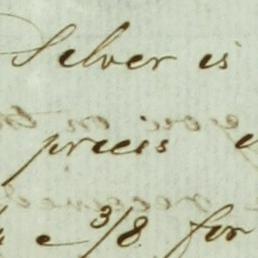 Silver is
prices
3/8 for